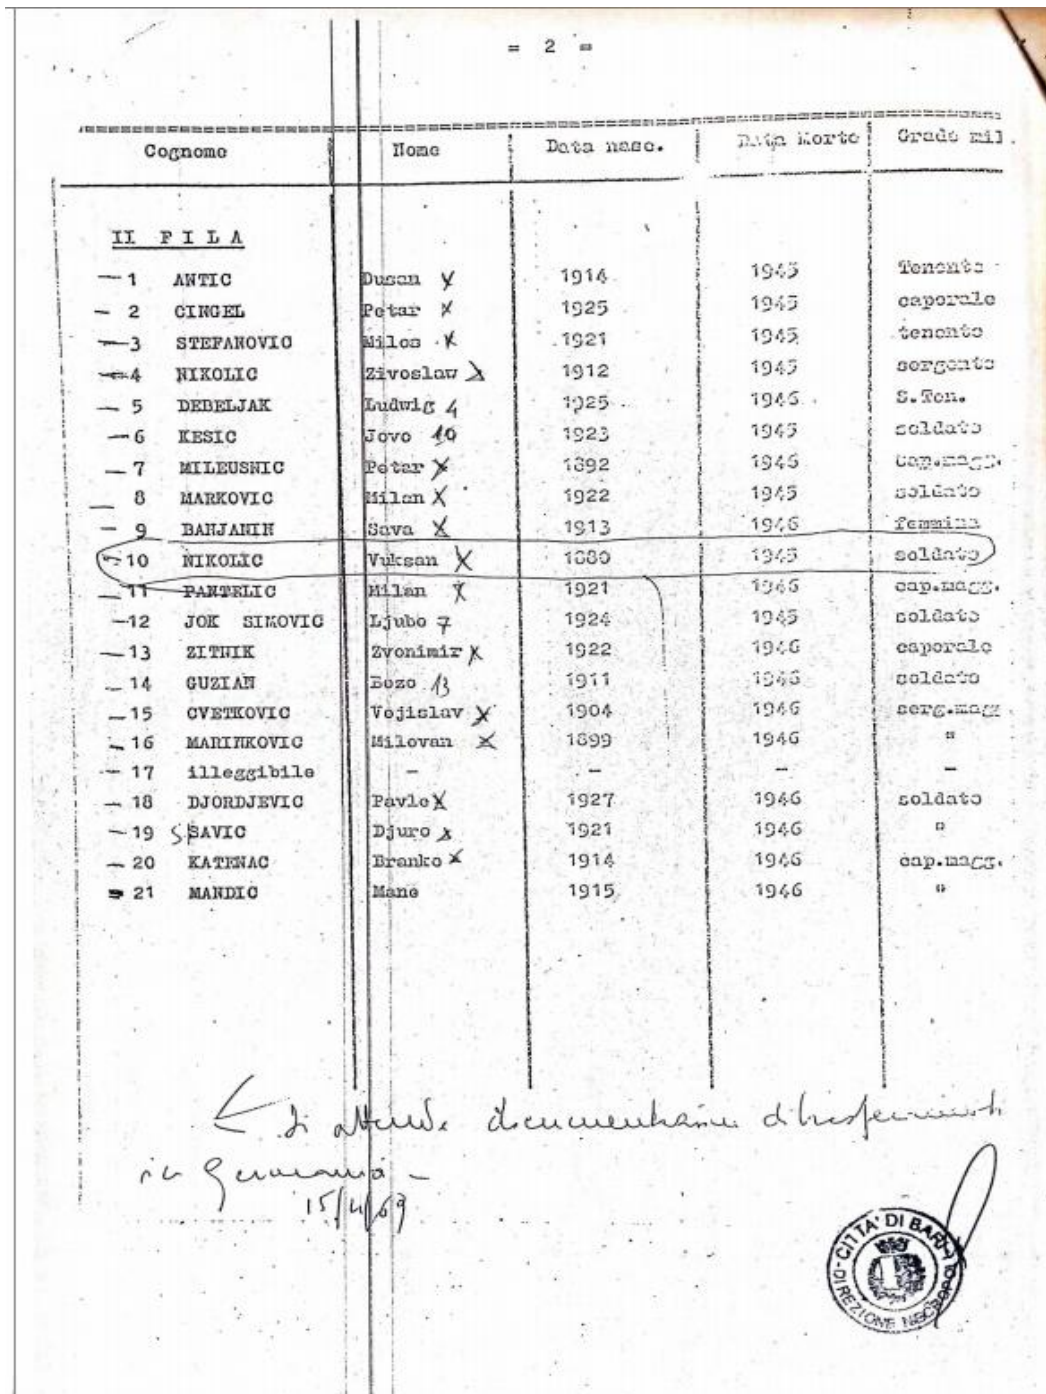 = 2 =
Cognome Nome Data nasc. Data Morte Grado mil.
II FILA
1 ANTIC Dusan X 1914 1945 Tenente
2 CINGEL Petar X 1925 1945 caporale
3 STEFANOVIC Milos X 1921 1945 tenente
4 NIKOLIC Zivoslaw X 1912 1945 sergente
5 DEBELJAK Ludwig 4 1925 1946 S.Ten.
6 KESIC Jovo 10 1923 1945 soldato
7 MILEUSNIC Petar X 1892 1946 Cap.magg.
8 MARKOVIC Milan X 1922 1945 soldato
9 BANJANIN Sava X 1913 1946 femmina
10 NIKOLIC Vuksan X 1880 1945 soldato
11 PANTELIC Milan X 1921 1946 cap.magg.
12 JOK SIMOVIC Ljubo 7 1924 1945 soldato
13 ZITNIK Zvonimir X 1922 1946 caporale
14 GUZIAN Bozo 13 1911 1946 soldato
15 CVETKOVIC Vojislav X 1904 1946 serg.magg.
16 MARINKOVIC Milovan X 1899 1946 "
17 illeggibile - - - -
18 DJORDJEVIC Pavle X 1927 1946 soldato
19 S SAVIC Djuro X 1921 1946 "
20 KATENAC Branko X 1914 1946 cap.magg.
21 MANDIC Mane 1915 1946 "
Si attende documentazione di trasferimento
in Germania -
15/4/69
CITTA' DI BARI
DIREZIONE NECROPOLI